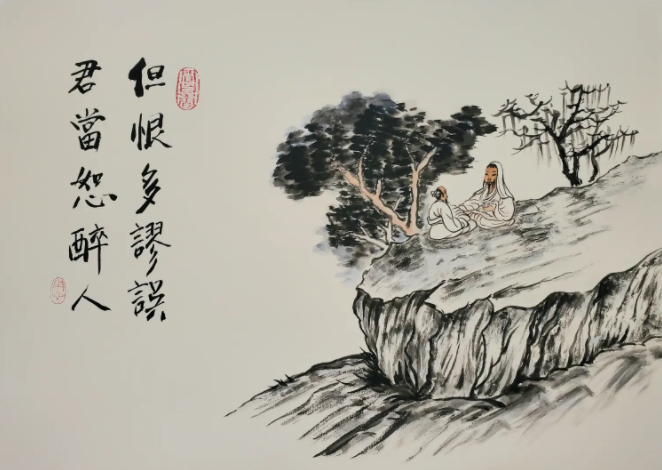 但恨多謬誤
君當恕醉人